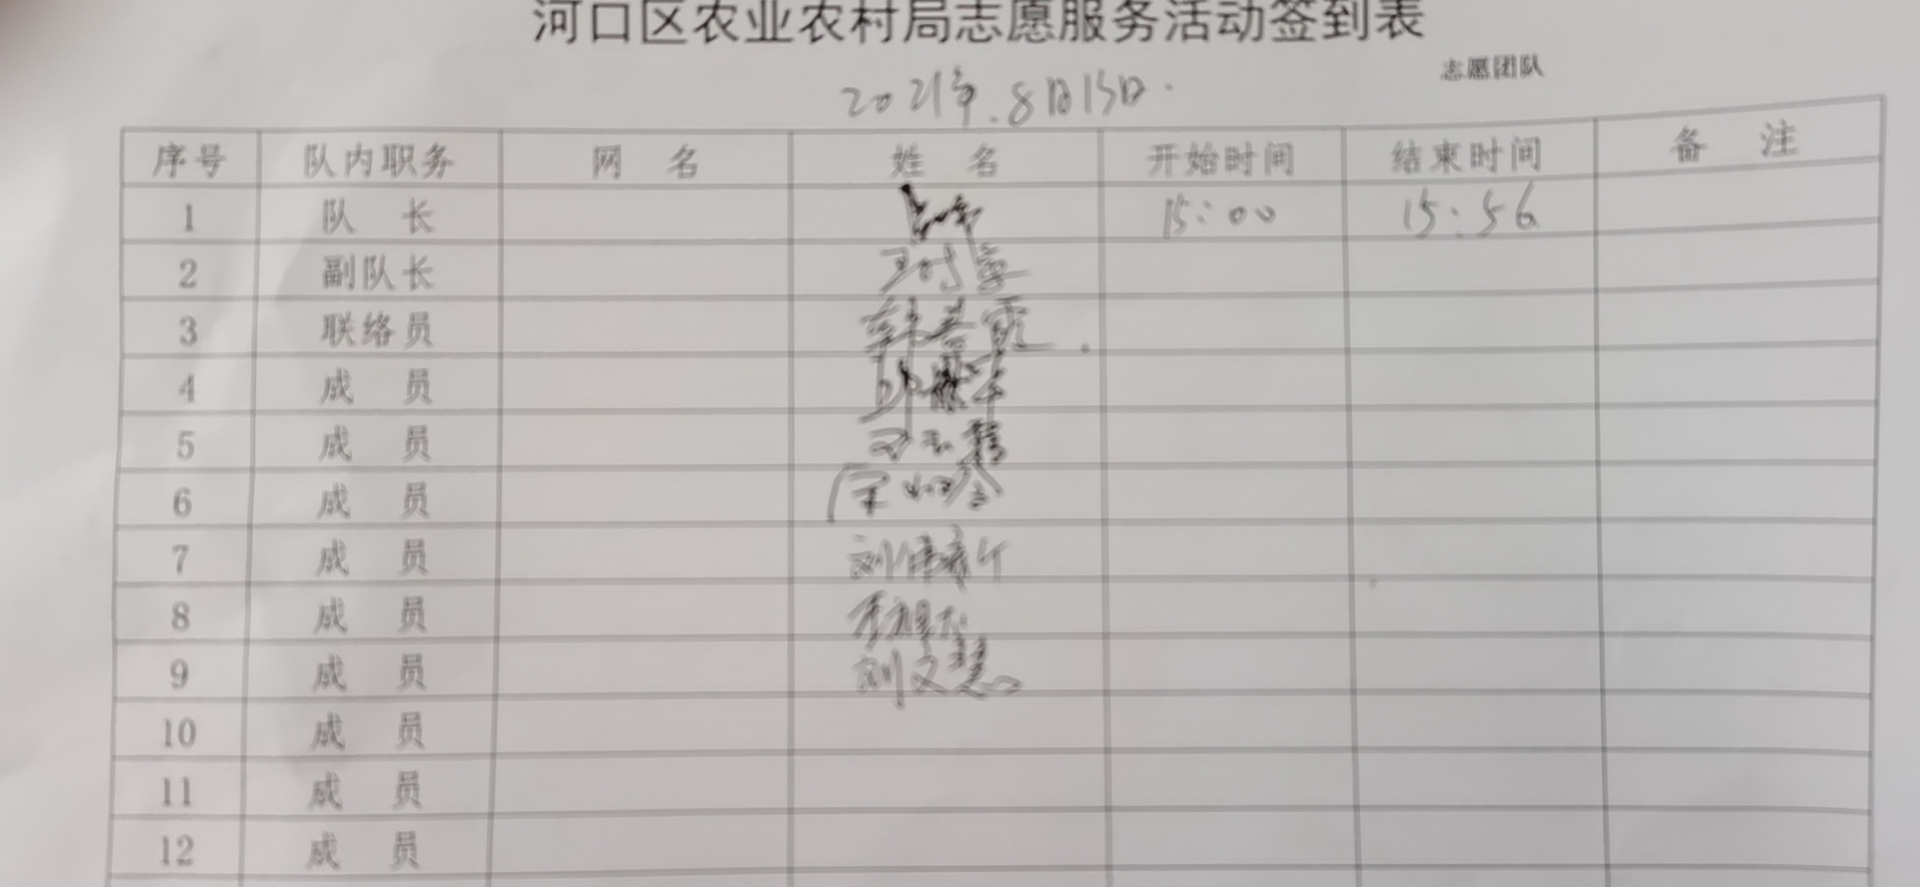 河口区农业农村局志愿服务活动签到表
志愿团队
2021年.8月13日.
序号 队内职务 网 名 姓 名 开始时间 结束时间 备 注
1 队 长 15:00 15:56
2 副队长
3 联络员 韩春霞
4 成 员
5 成 员
6 成 员
7 成 员
8 成 员
9 成 员 刘文慧
10 成 员
11 成 员
12 成 员